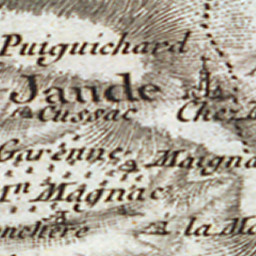 Puiguichard
Jaude
Cussac Chez
Garenne Maigna
In Magnac
nchere la Ma